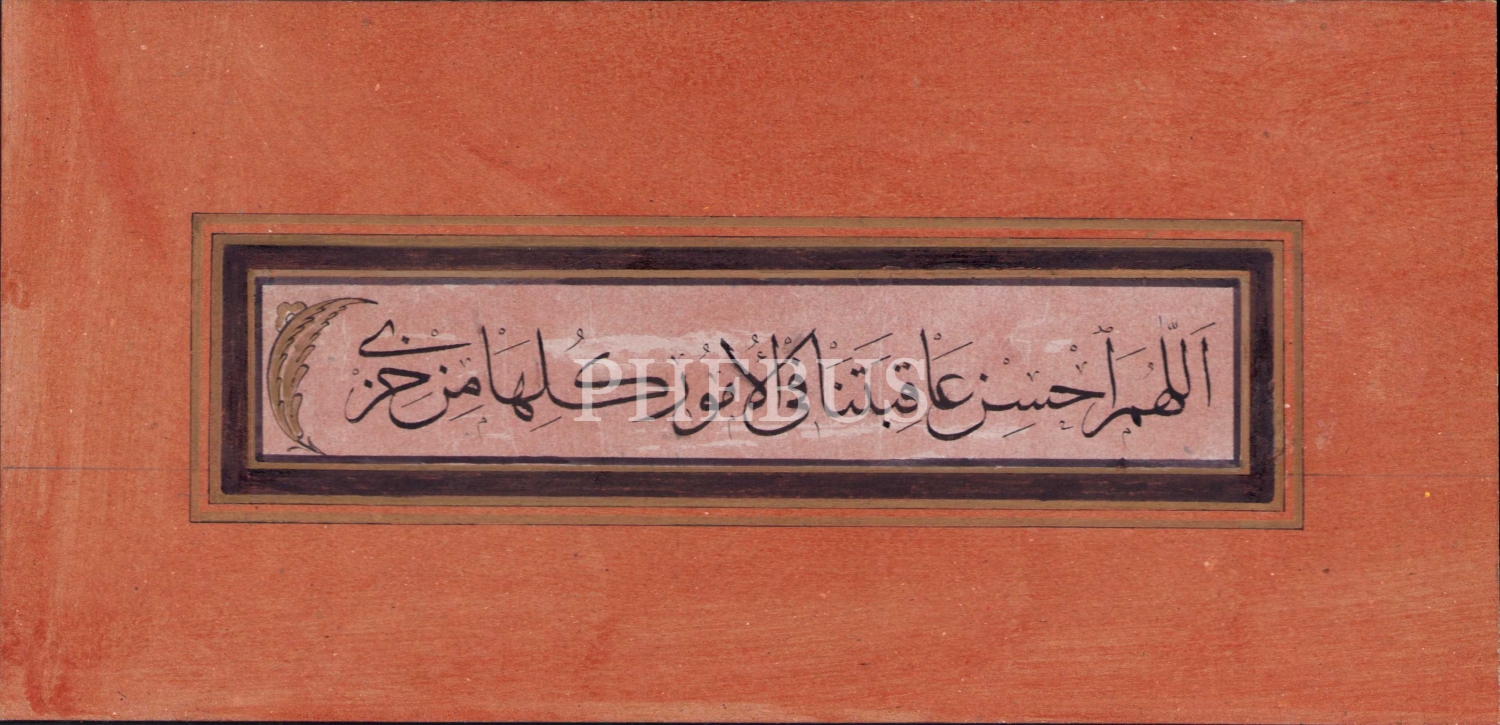 اللهم أحسن عاقبتنا فى الأمور كلها من خزى
PHEBUS